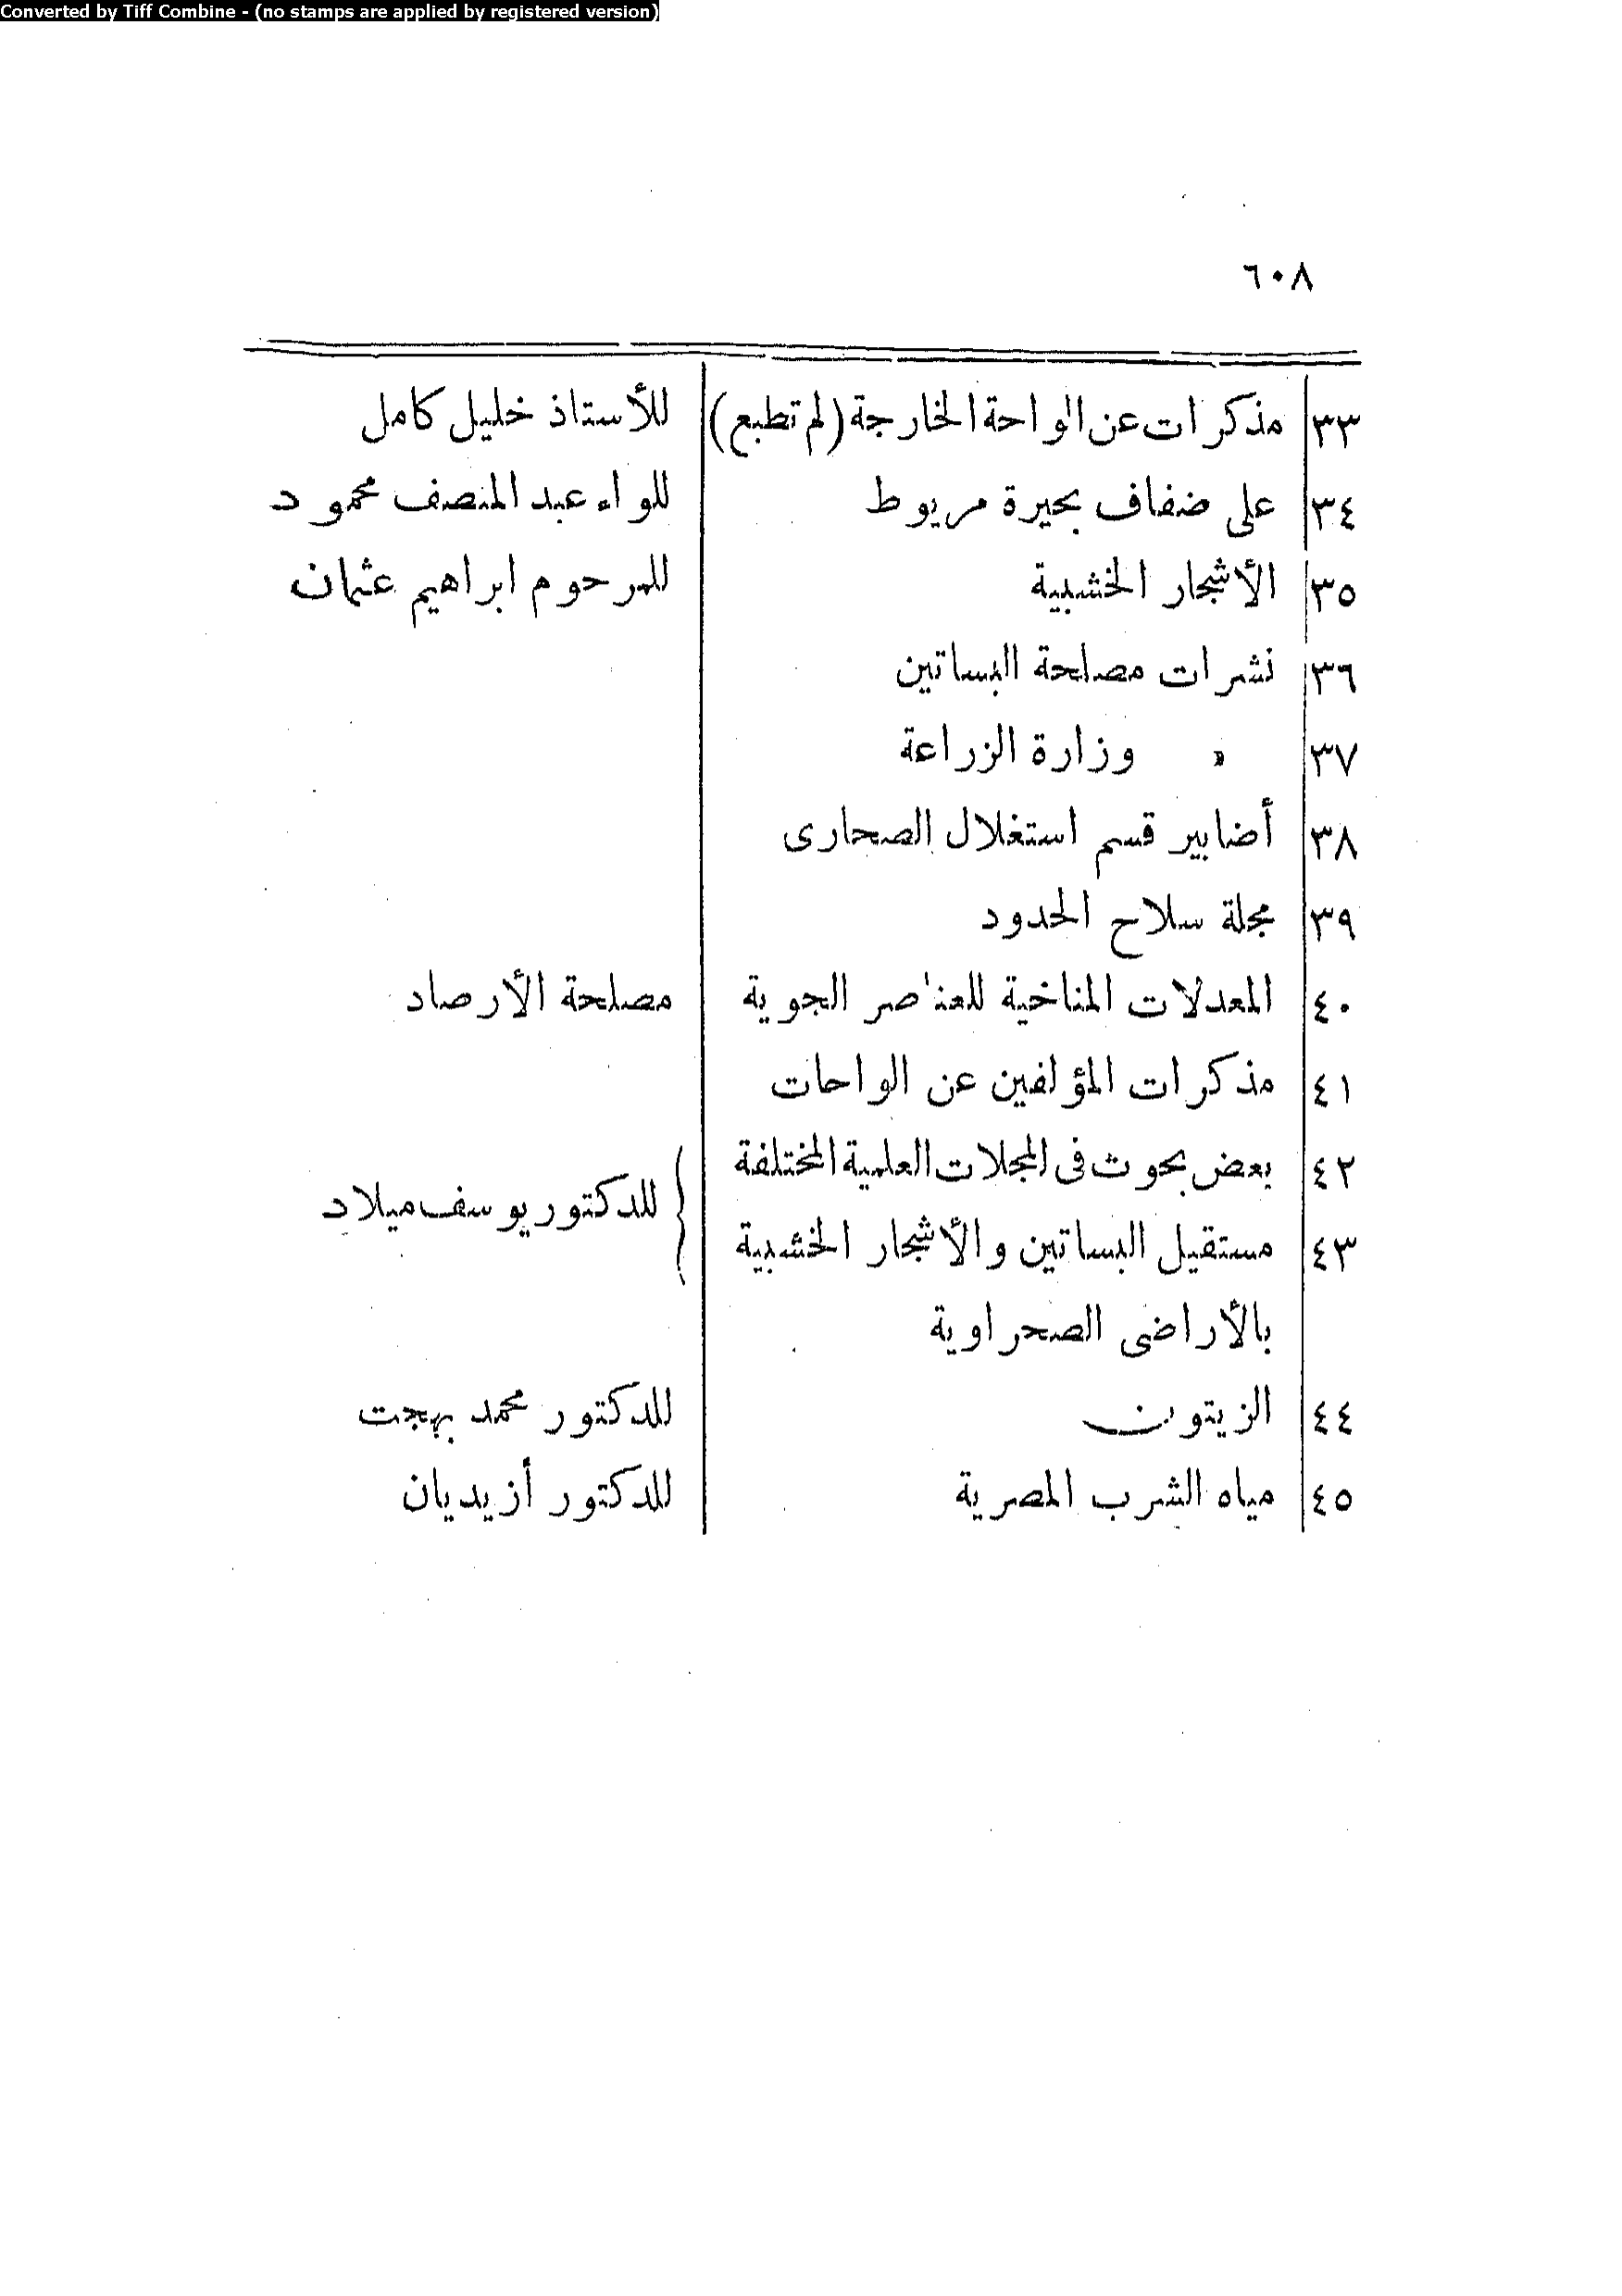 Converted by Tiff Combine - (no stamps are applied by registered version)
٦٠٨
٣٣ مذكرات عن الواحة الخارجة (لم تطبع) للأستاذ خليل كامل
٣٤ على ضفاف بحيرة مريوط للواء عبد المنصف محمود
٣٥ الأشجار الخشبية للمرحوم ابراهيم عثمان
٣٦ نشرات مصلحة البساتين
٣٧ » وزارة الزراعة
٣٨ أضابير قسم استغلال الصحارى
٣٩ مجلة سلاح الحدود
٤٠ المعدلات المناخية للعناصر الجوية مصلحة الأرصاد
٤١ مذكرات المؤلفين عن الواحات
٤٢ بعض بحوث فى المجلات العلمية المختلفة
للدكتور يوسف ميلاد
٤٣ مستقبل البساتين والأشجار الخشبية
بالأراضى الصحراوية
٤٤ الزيتون للدكتور محمد بهجت
٤٥ مياه الشرب المصرية للدكتور أزيديان